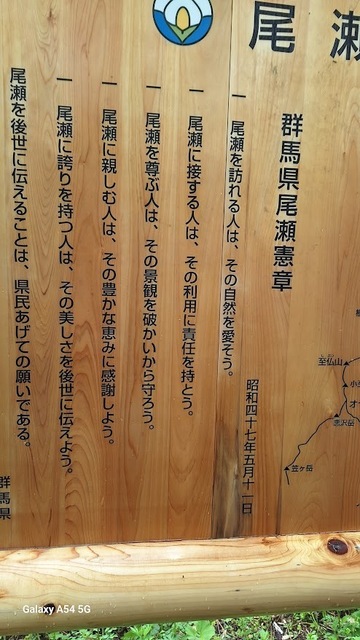 尾瀬
群馬県尾瀬憲章
昭和四十七年五月十一日
一 尾瀬を訪れる人は、その自然を愛そう。
一 尾瀬に接する人は、その利用に責任を持とう。
一 尾瀬を尊ぶ人は、その景観を破かいから守ろう。
一 尾瀬に親しむ人は、その豊かな恵みに感謝しよう。
一 尾瀬に誇りを持つ人は、その美しさを後世に伝えよう。
尾瀬を後世に伝えることは、県民あげての願いである。
群馬県
至仏山
悪沢岳
笠ヶ岳
Galaxy A54 5G